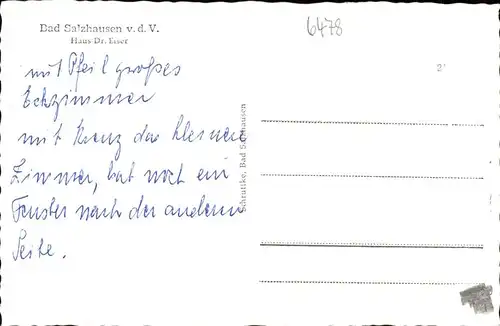 Bad Salzhausen v. d. V.
Haus Dr. Esser
6478
mit Pfeil großes
Eckzimmer
mit Kreuz das kleinere
Zimmer, hat noch ein
Fenster nach der anderen
Seite.
Schruttke, Bad Salzhausen